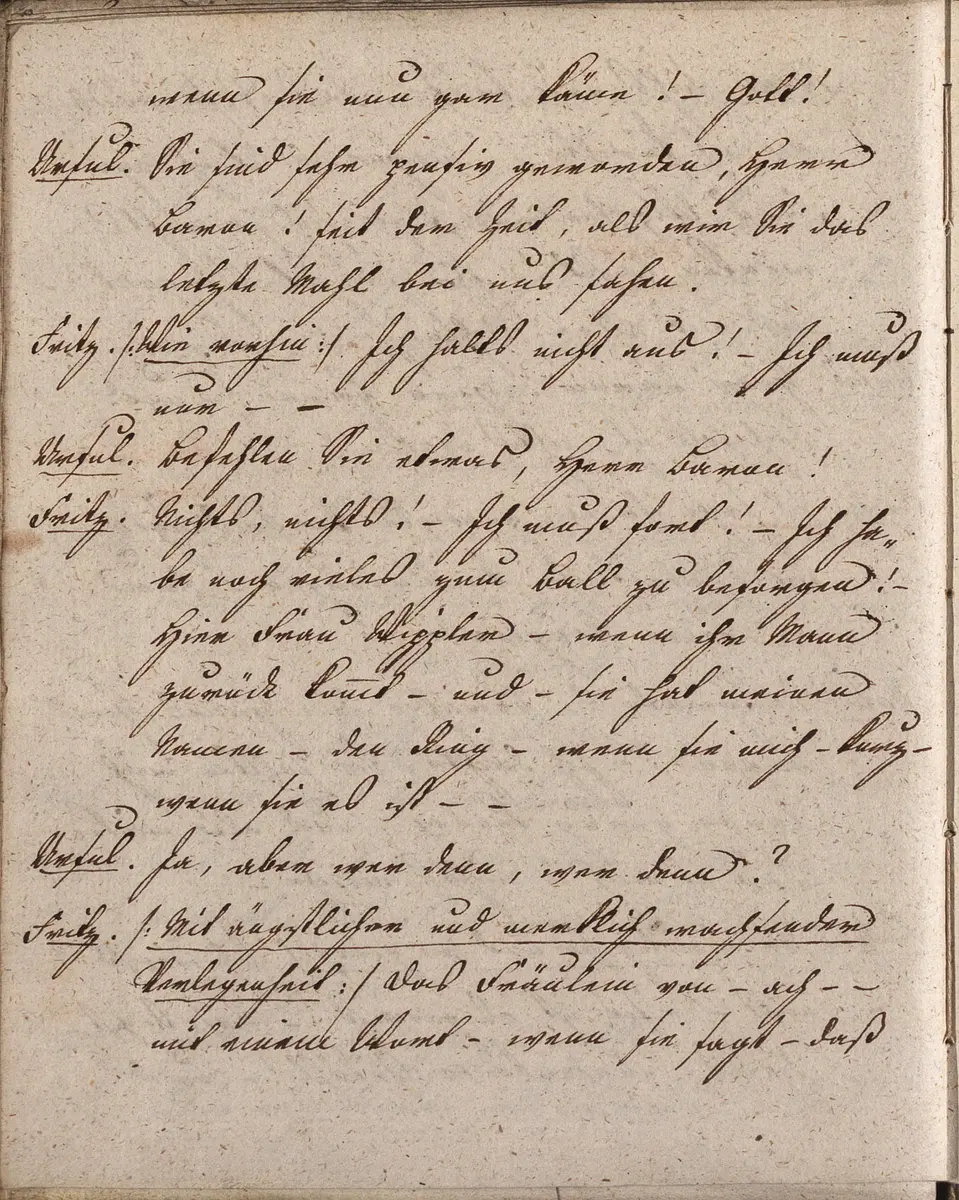 wenn sie nun gar käme! – Gott!
Ursul. Sie sind sehr pensiv geworden, Herr
Baron! seit der Zeit, als wir Sie das
letzte Mahl bei uns sahen.
Fritz. /: Wie vorhin :/ Ich halts nicht aus! – Ich muß
nur – –
Ursul. Befehlen Sie etwas, Herr Baron!
Fritz. Nichts, nichts! – Ich muß fort! – Ich ha„
be noch vieles zum Ball zu besorgen! –
Hier Frau Wippler – wenn ihr Mann
zurück kom̅t – und – sie hat meinen
Namen – den Ring – wenn sie mich – kurz –
wenn sie es ist – –
Ursul. Ja, aber wer denn, wer denn?
Fritz. /: Mit ängstlicher und merklich wachsender
Verlegenheit :/ Das Fräulein von – ach – –
mit einem Wort – wenn sie sagt – daß